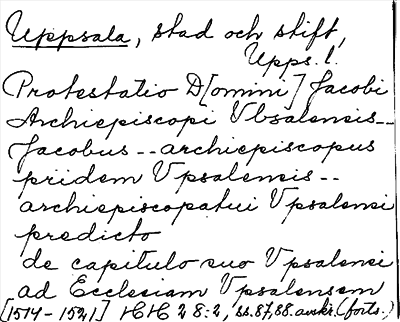 Uppsala, stad och stift,
Upps. l.
Protestatio D[omini] Jacobi
Archiepiscopi Vbsalensis--
Jacobus -- archiepiscopus
pridem Vpsalensis --
archiepiscopatui Vpsalensi
predicto
de capitulo suo Vpsalensi
ad Ecclesiam Vpsalensem
[1514-1521] HH 28:2, ss. 87,88. (forts.)